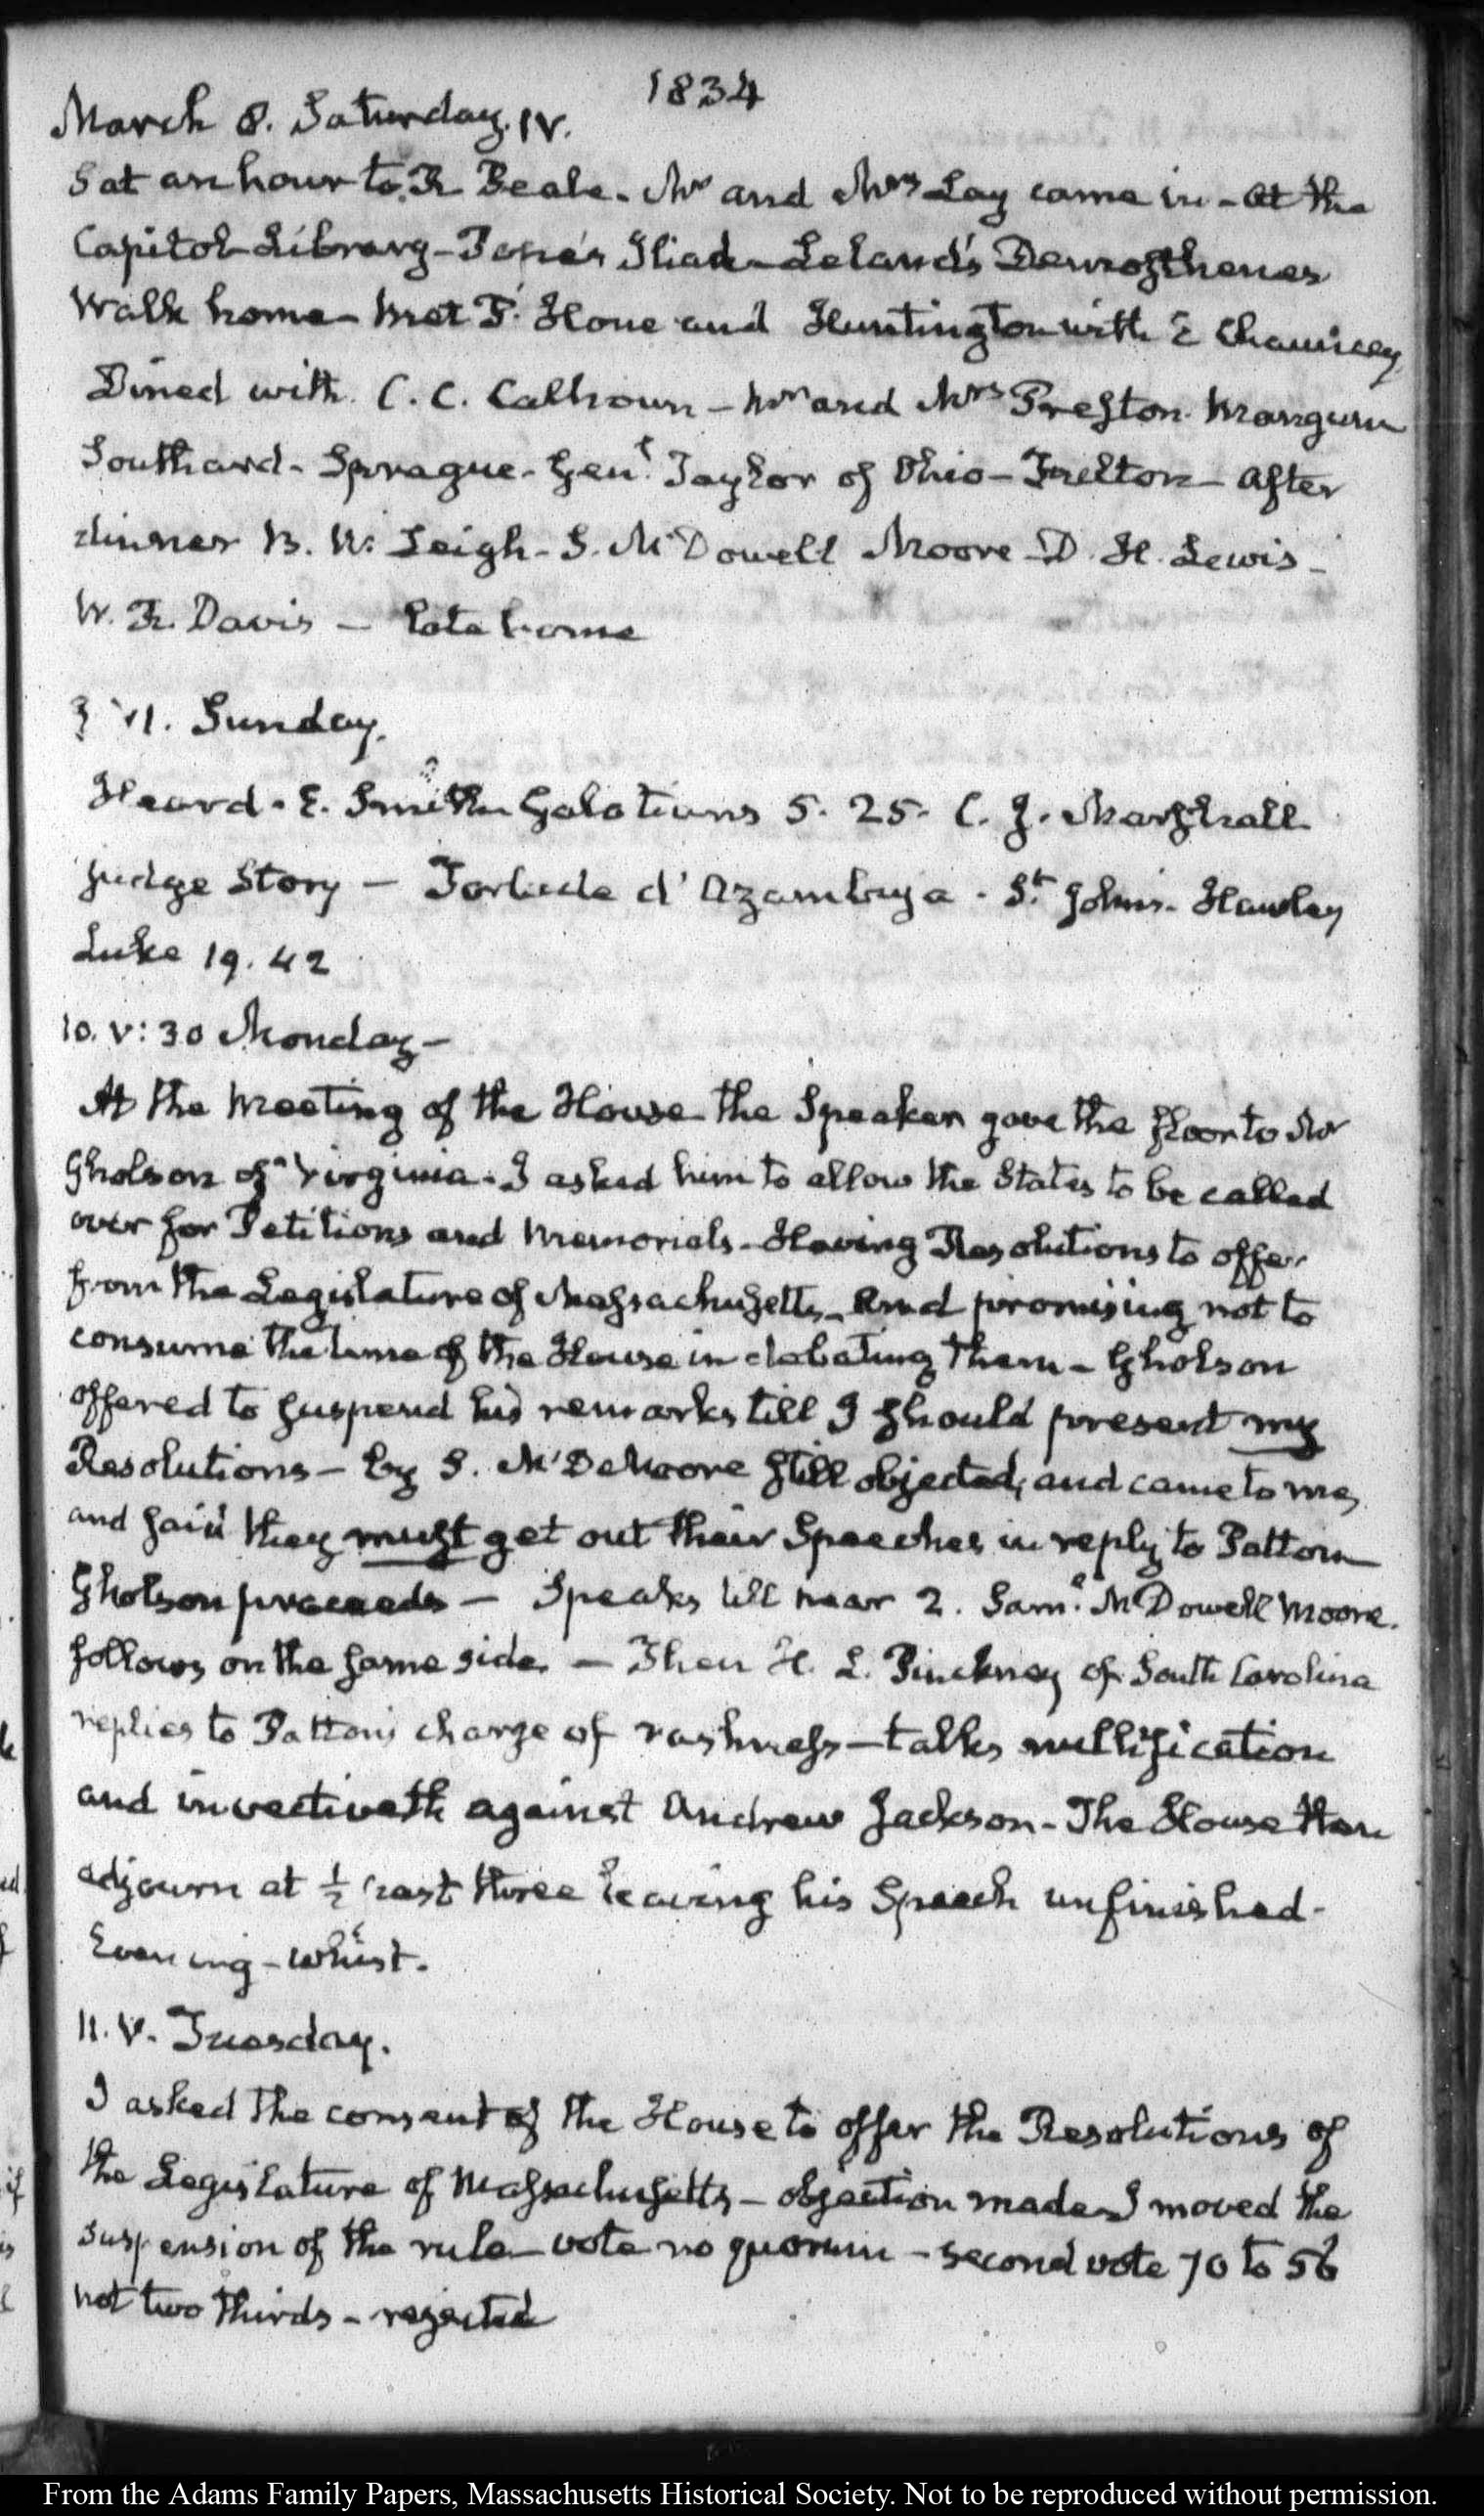 1834
March 8. Saturday. IV.
Sat an hour to R Beale. Mr and Mrs Lay came in - At the
Capitol Library - Pope's Iliad - Leland's Demosthenes
Walk home - Met P. Hone and Huntington with E Chauncey
Dined with C. C. Calhoun - Mr and Mrs Preston. Mangum
Southard - Sprague - Genl Taylor of Ohio - Felton - After
dinner B. W. Leigh - S. McDowell Moore - D. H. Lewis -
W. R. Davis - late home
VI. Sunday.
Heard - E. Smith Galatians 5. 25. C. J. Marshall
Judge Story - Torlade d'Azambuja. St Johns. Hawley
Luke 19. 42
10. V: 30 Monday -
At the Meeting of the House the Speaker gave the floor to Mr
Gholson of Virginia. I asked him to allow the States to be called
over for Petitions and Memorials - Having Resolutions to offer
from the Legislature of Massachusetts - And promising not to
consume the time of the House in debating them - Gholson
offered to suspend his remarks till I should present my
Resolutions - S. McD Moore still objected, and came to me,
and said they must get out their Speeches in reply to Patton
Gholson proceeds - Speaks till near 2. Saml. McDowell Moore.
follows on the same side. - Then H. L. Pinckney of South Carolina
replies to Patton's charge of rashness - talks nullification
and invectiveth against Andrew Jackson - The House then
adjourn at ½ past three leaving his Speech unfinished -
Evening - Whist.
11. V. Tuesday.
I asked the consent of the House to offer the Resolutions of
the Legislature of Massachusetts - objection made I moved the
suspension of the rule - vote no quorum - second vote 70 to 56
not two thirds - rejected
From the Adams Family Papers, Massachusetts Historical Society. Not to be reproduced without permission.